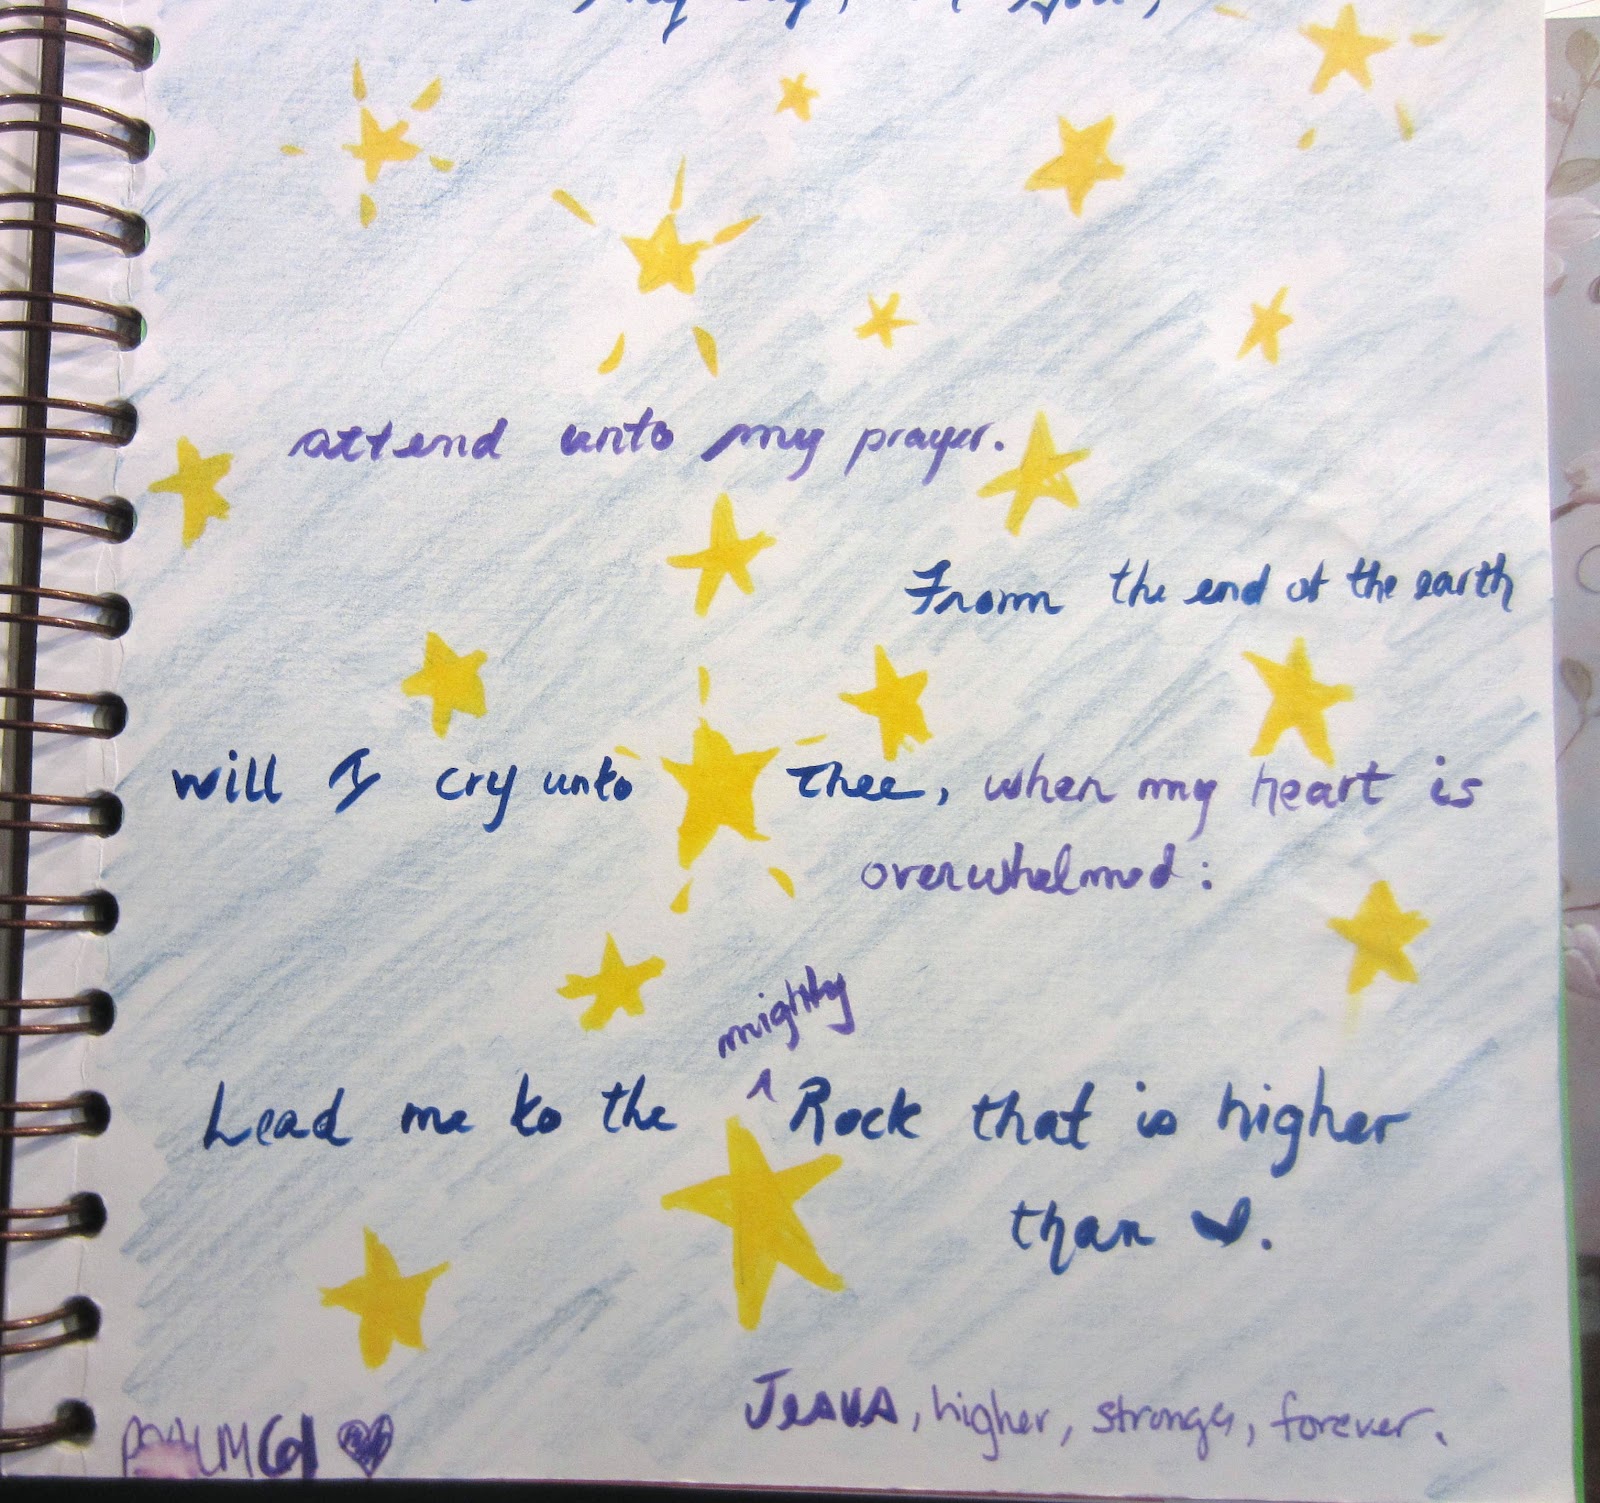 attend unto my prayer.
From the end of the earth
will I cry unto thee, when my heart is
overwhelmed:
mighty
Lead me to the ^ Rock that is higher
than ♥.
Jesus, higher, stronger, forever.
PSALM 61 ♥